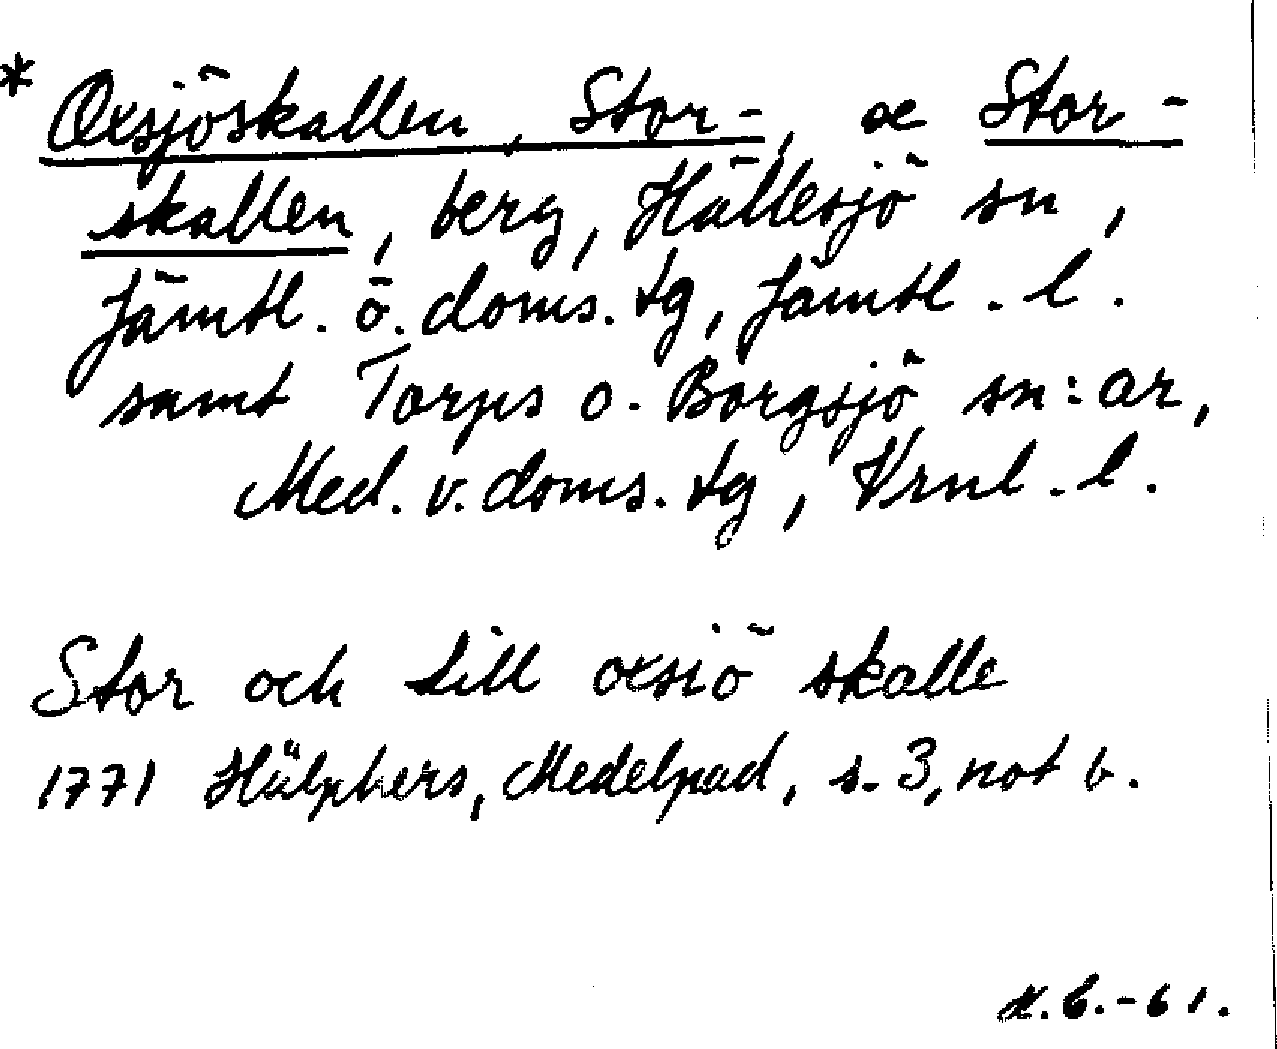 * Oxsjöskallen, Stor-, se Stor-
skallen, berg, Hällesjö sn,
Jämtl. ö. doms. tg, Jämtl. l.
samt Torps o. Borgsjö sn:ar,
Med. v. doms. tg, Vrnl. l.
Stor och Lill oxsiö skalle
1771 Hülphers, Medelpad, s. 3, not b.
-61.